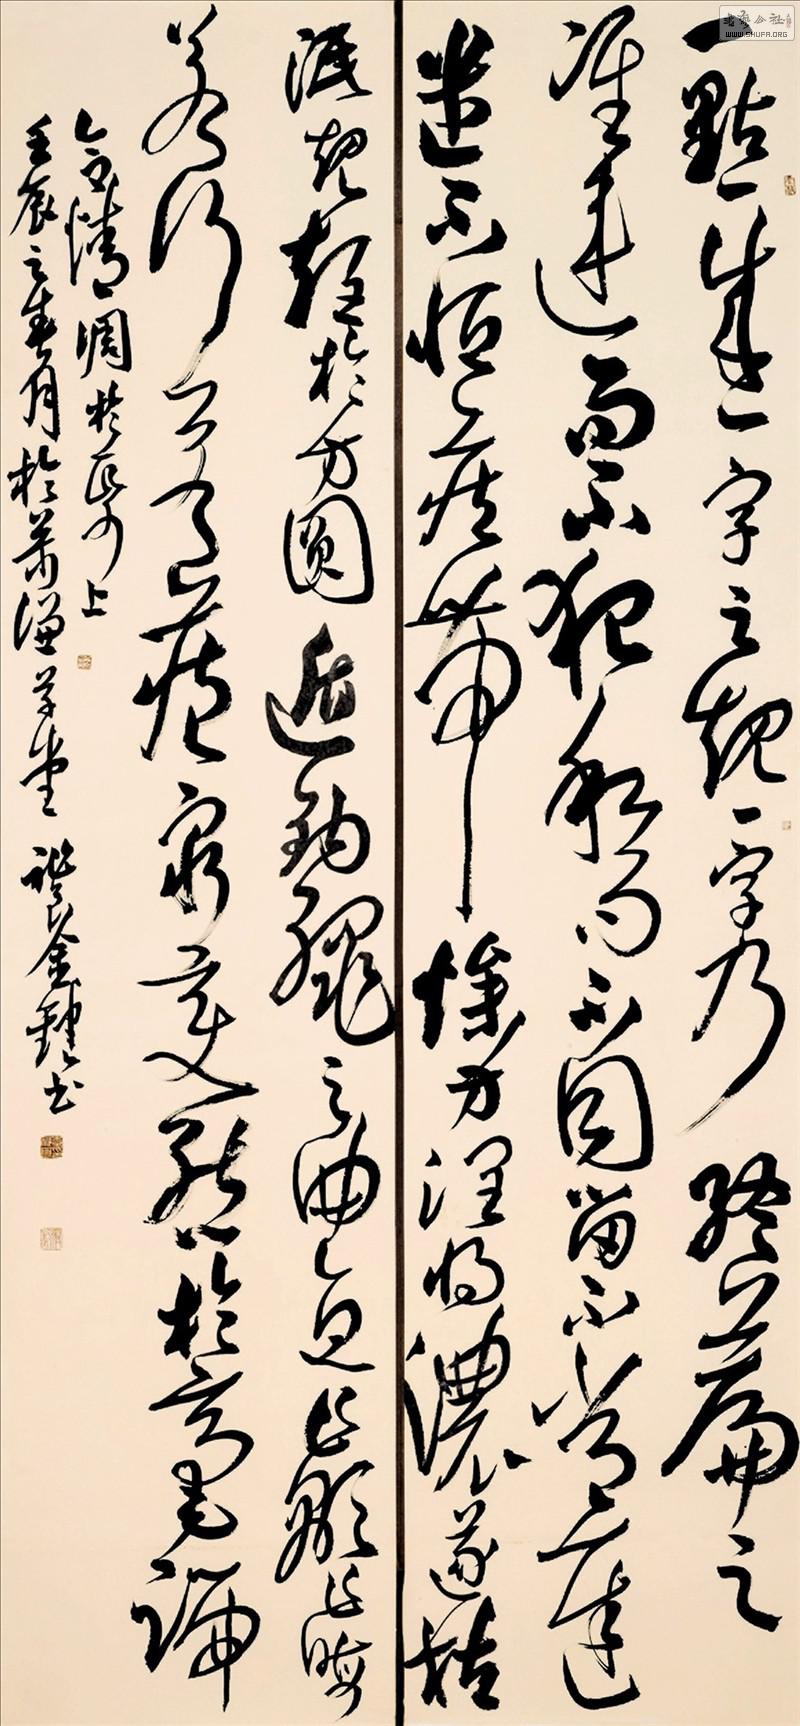 書藝公社
WWW.SHUFA.ORG
一點成一字之規一字乃終篇之
准違而不犯和而不同留不常遲
遣不恒疾帶燥方潤將濃遂枯
泯規矩於方圓遁鉤繩之曲直乍顯乍晦
若行若藏窮變態於毫端
合情調於紙上
壬辰之春月於 謙草堂 金鐘書